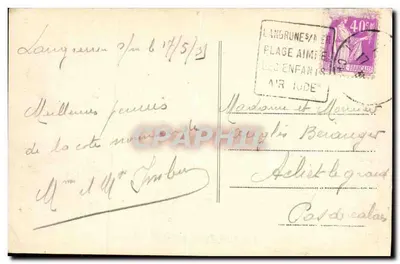 Langrune s/m le 17/5/35
Meilleures pensées
de la côte normande
Mme et Mr Imbert
LANGRUNE S/MER
PLAGE AIMÉE
DES ENFANTS
AIR IODÉ
40c
Madame et Monsieur
Béranger
Achiet le grand
Pas de calais
CPAPHIL